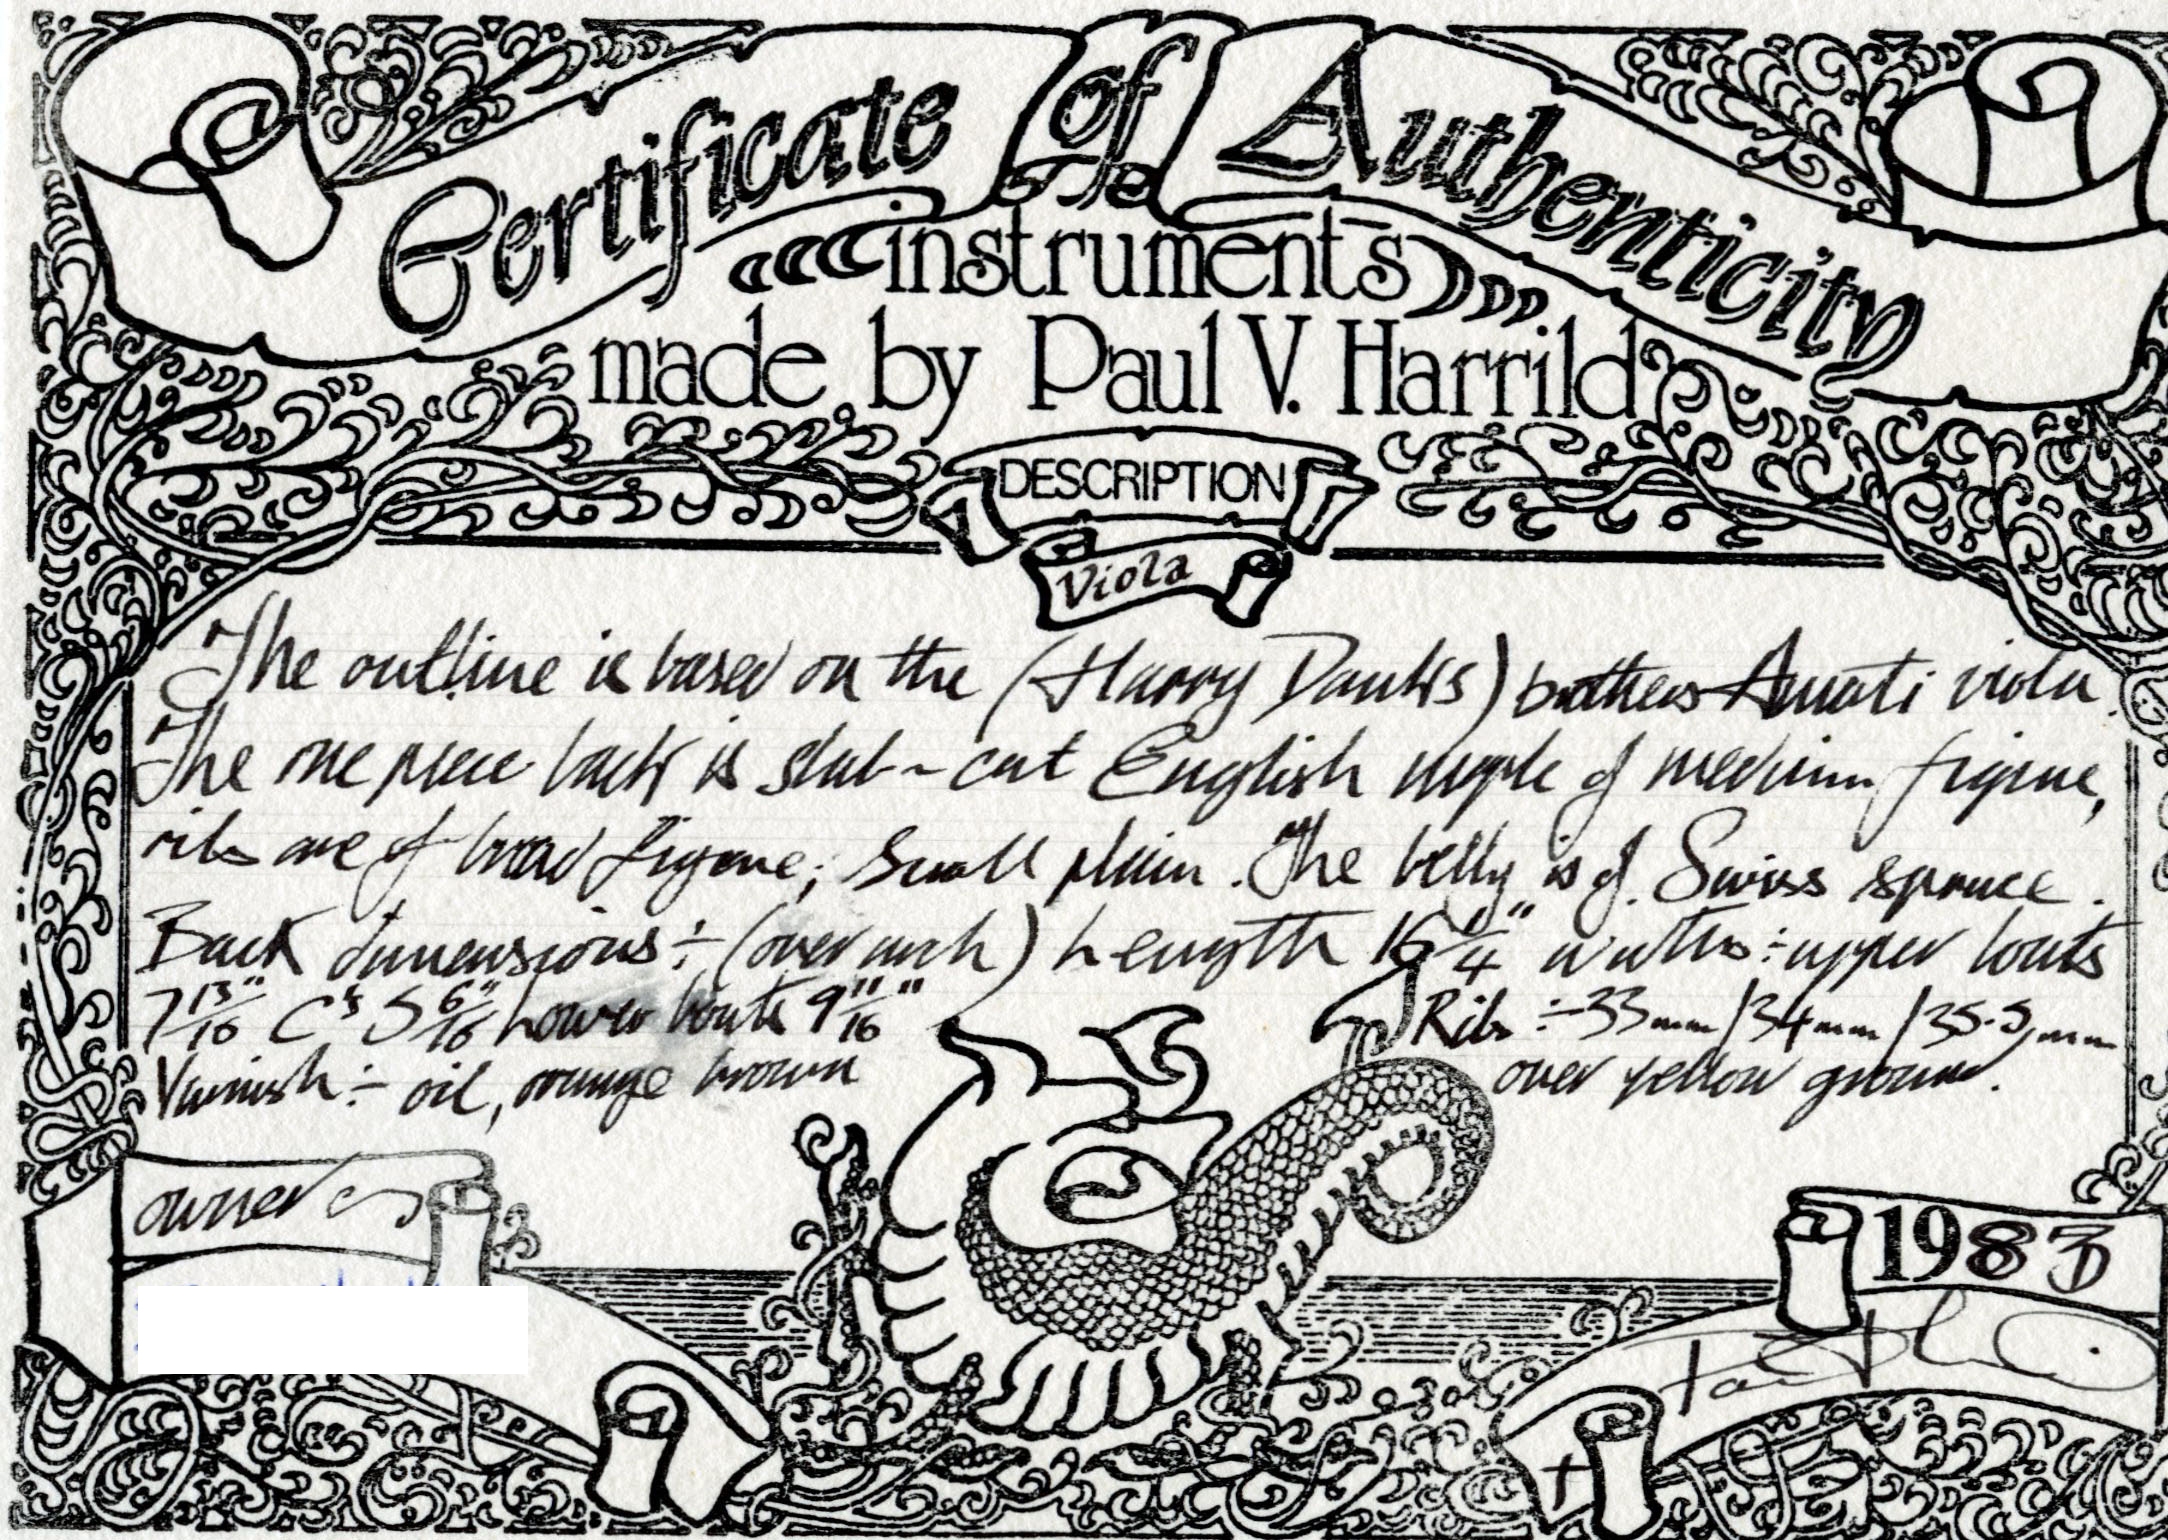 Certificate of Authenticity
instruments
made by Paul V. Harrild
DESCRIPTION
Viola
The outline is based on the (Harry Danks) brothers Amati viola.
The one piece back is slab-cut English maple of medium figure,
ribs are of broad figure; Scroll plain. The belly is of Swiss spruce.
Back dimensions ÷ (over arch) Length 16 1/4" widths ÷ upper bouts
7 13/16" C's 5 6/16" Lower bouts 9 11/16" Ribs ÷ 33mm/34mm/35.5mm
Varnish ÷ oil, orange brown over yellow ground.
owner
1983